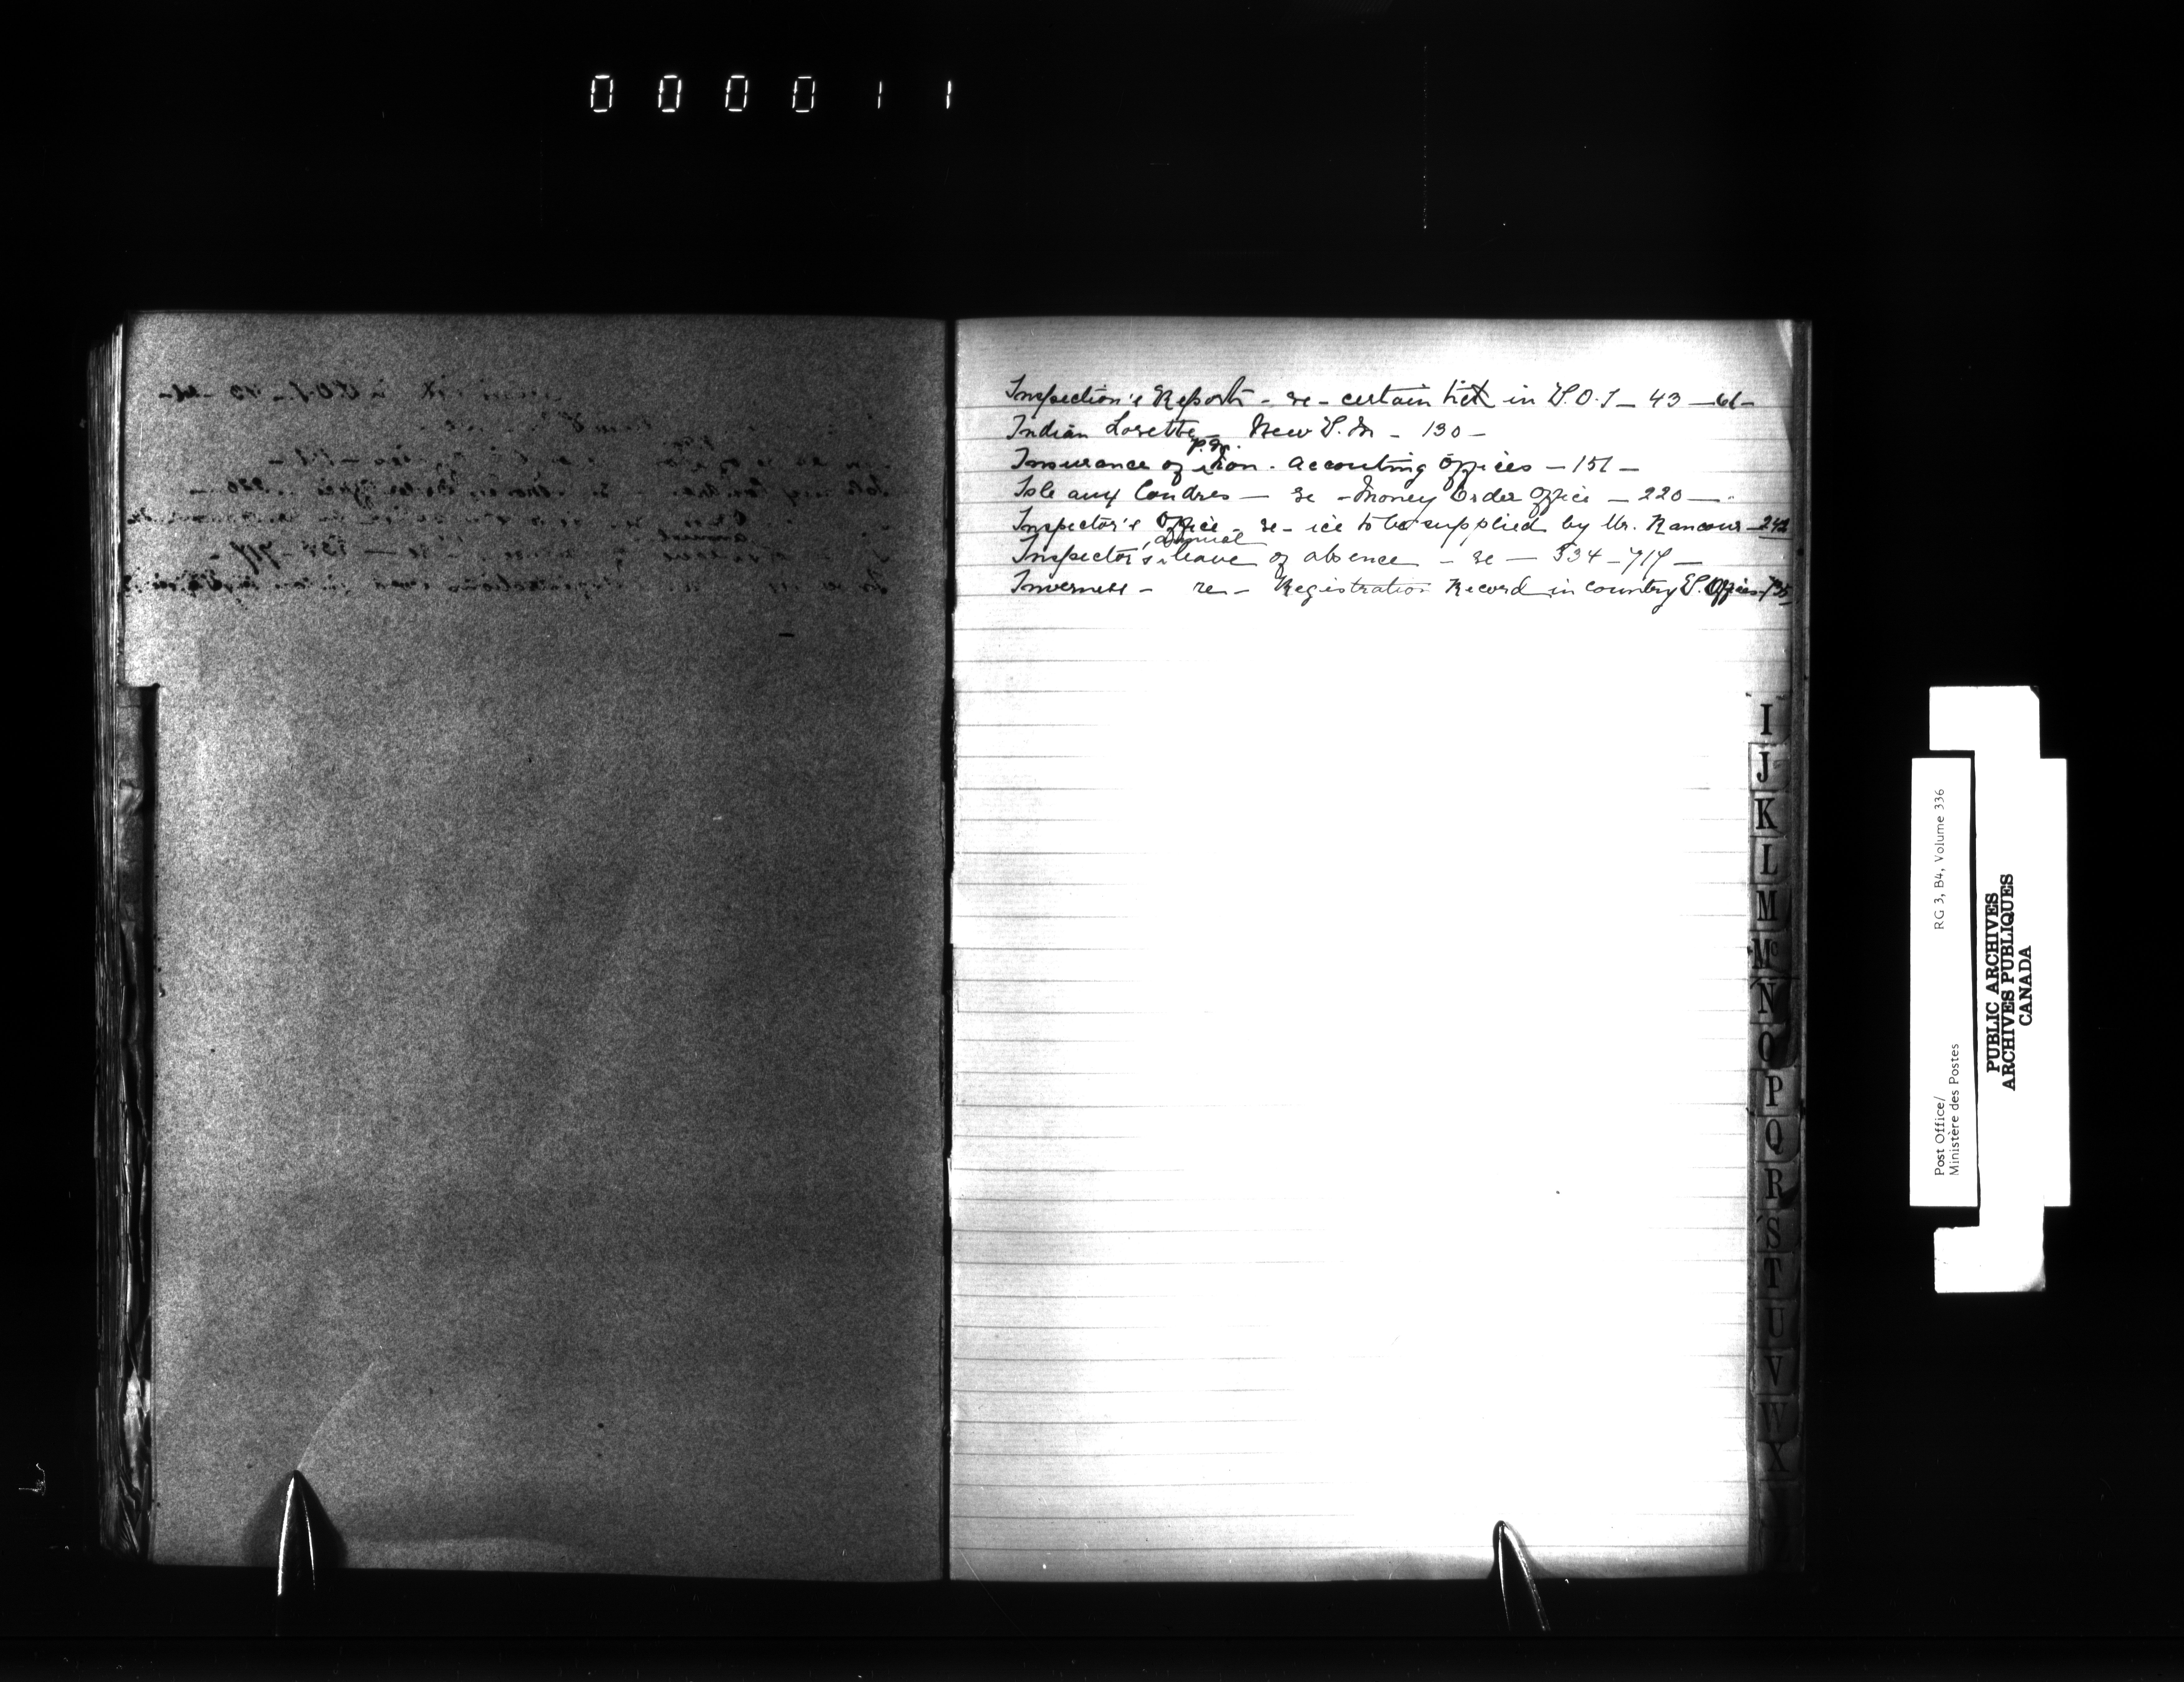 000011
Inspection's Reports - re - certain in P.O.I - 43 - 61 -
Indian Lorette - New P.M - 130 -
P.M.
Insurance of Non. accounting offices - 151 -
Isle aux Coudres - re - Money Order Office - 220 -
Inspector's Office - re - ice to be supplied by Mr. Rancour - 242
annual
Inspector's leave of absence - re - 334 - 717 -
Inverness - re - Registration Record in country P. Offices - 735
I
J
K
L
M
Mc
N
O
P
Q
R
S
T
U
V
W
X
Post Office/
Ministère des Postes
RG 3, B4, Volume 336
PUBLIC ARCHIVES
ARCHIVES PUBLIQUES
CANADA